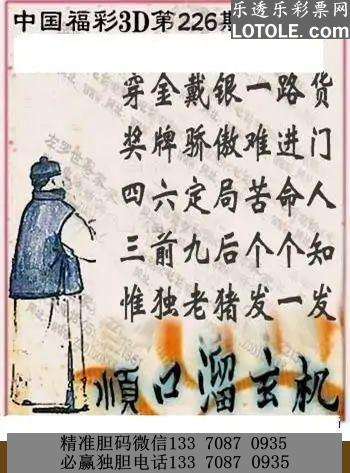 中国福彩3D第226期
乐透乐彩票网
LOTOLE.COM
穿金戴银一路货
奖牌骄傲难进门
四六定局苦命人
三前九后个个知
惟独老猪发一发
顺口溜玄机
精准胆码微信133 7087 0935
必赢独胆电话133 7087 0935